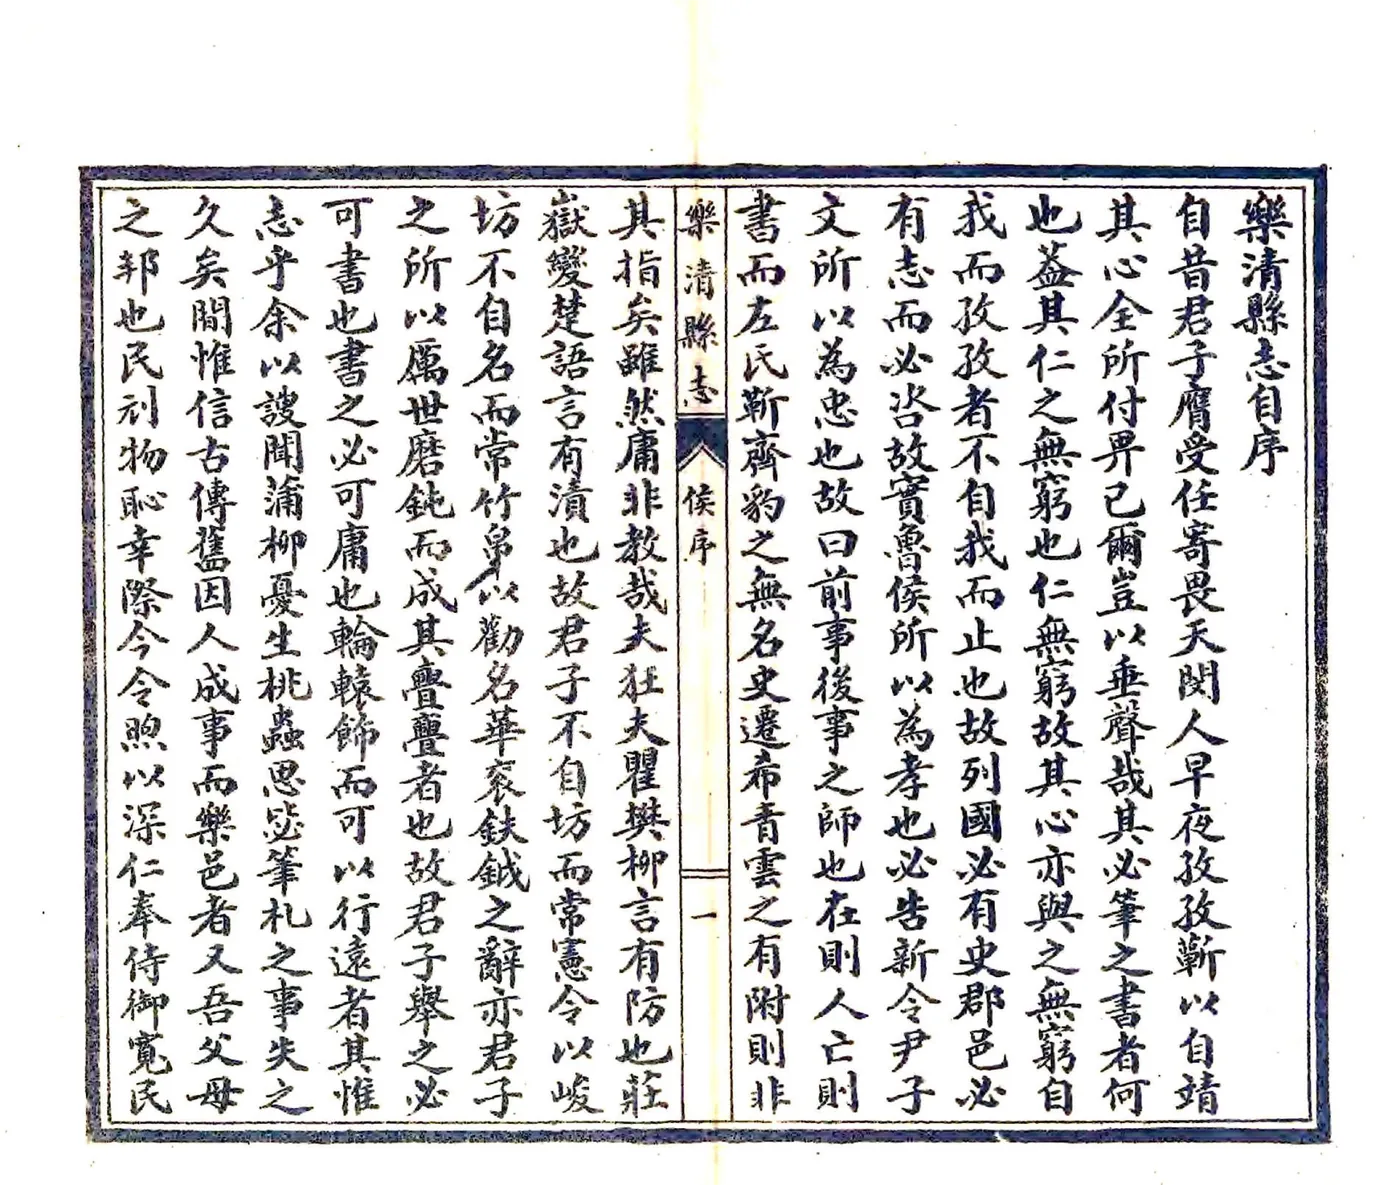 樂清縣志自序
自昔君子膺受任寄畏天閔人早夜孜孜蘄以自靖
其心全所付畀已爾豈以垂聲哉其必筆之書者何
也葢其仁之無窮也仁無窮故其心亦與之無窮自
我而孜孜者不自我而止也故列國必有史郡邑必
有志而必咨故實魯侯所以為孝也必告新令尹子
文所以為忠也故曰前事後事之師也在則人亡則
書而左氏靳齊豹之無名史遷希青雲之有附則非
樂清縣志
侯序
一
其指矣雖然庸非教哉夫狂夫瞿樊柳言有防也莊
嶽變楚語言有漬也故君子不自坊而常憲令以峻
坊不自名而常竹帛以勸名華衮鈇鉞之辭亦君子
之所以厲世磨鈍而成其亹亹者也故君子舉之必
可書也書之必可庸也輪轅飾而可以行遠者其惟
志乎余以謏聞蒲柳憂生桃蟲思毖筆札之事失之
久矣間惟信古傳舊因人成事而樂邑者又吾父母
之邦也民利物恥幸際今令煦以深仁奉侍御寬民